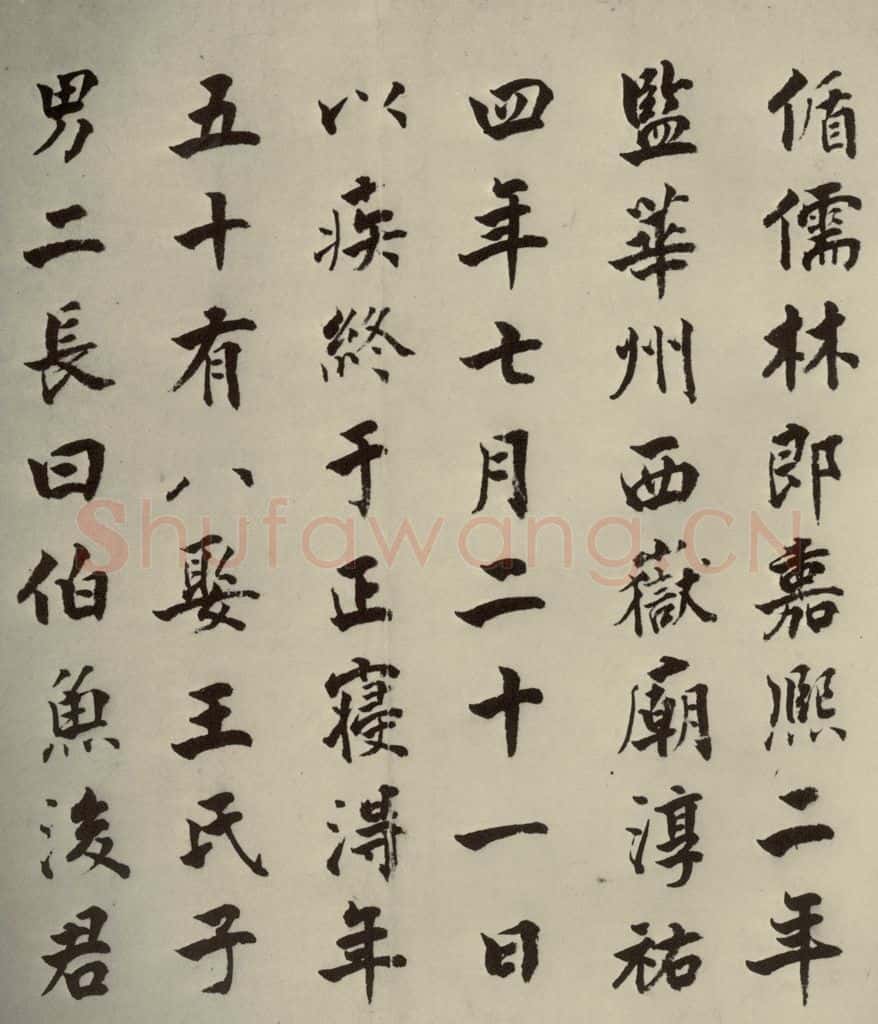 偱儒林郎嘉熙二年
監華州西嶽廟淳祐
四年七月二十一日
以疾終于正寢得年
五十有八娶王氏子
男二長曰伯魚後君
Shufawang.CN